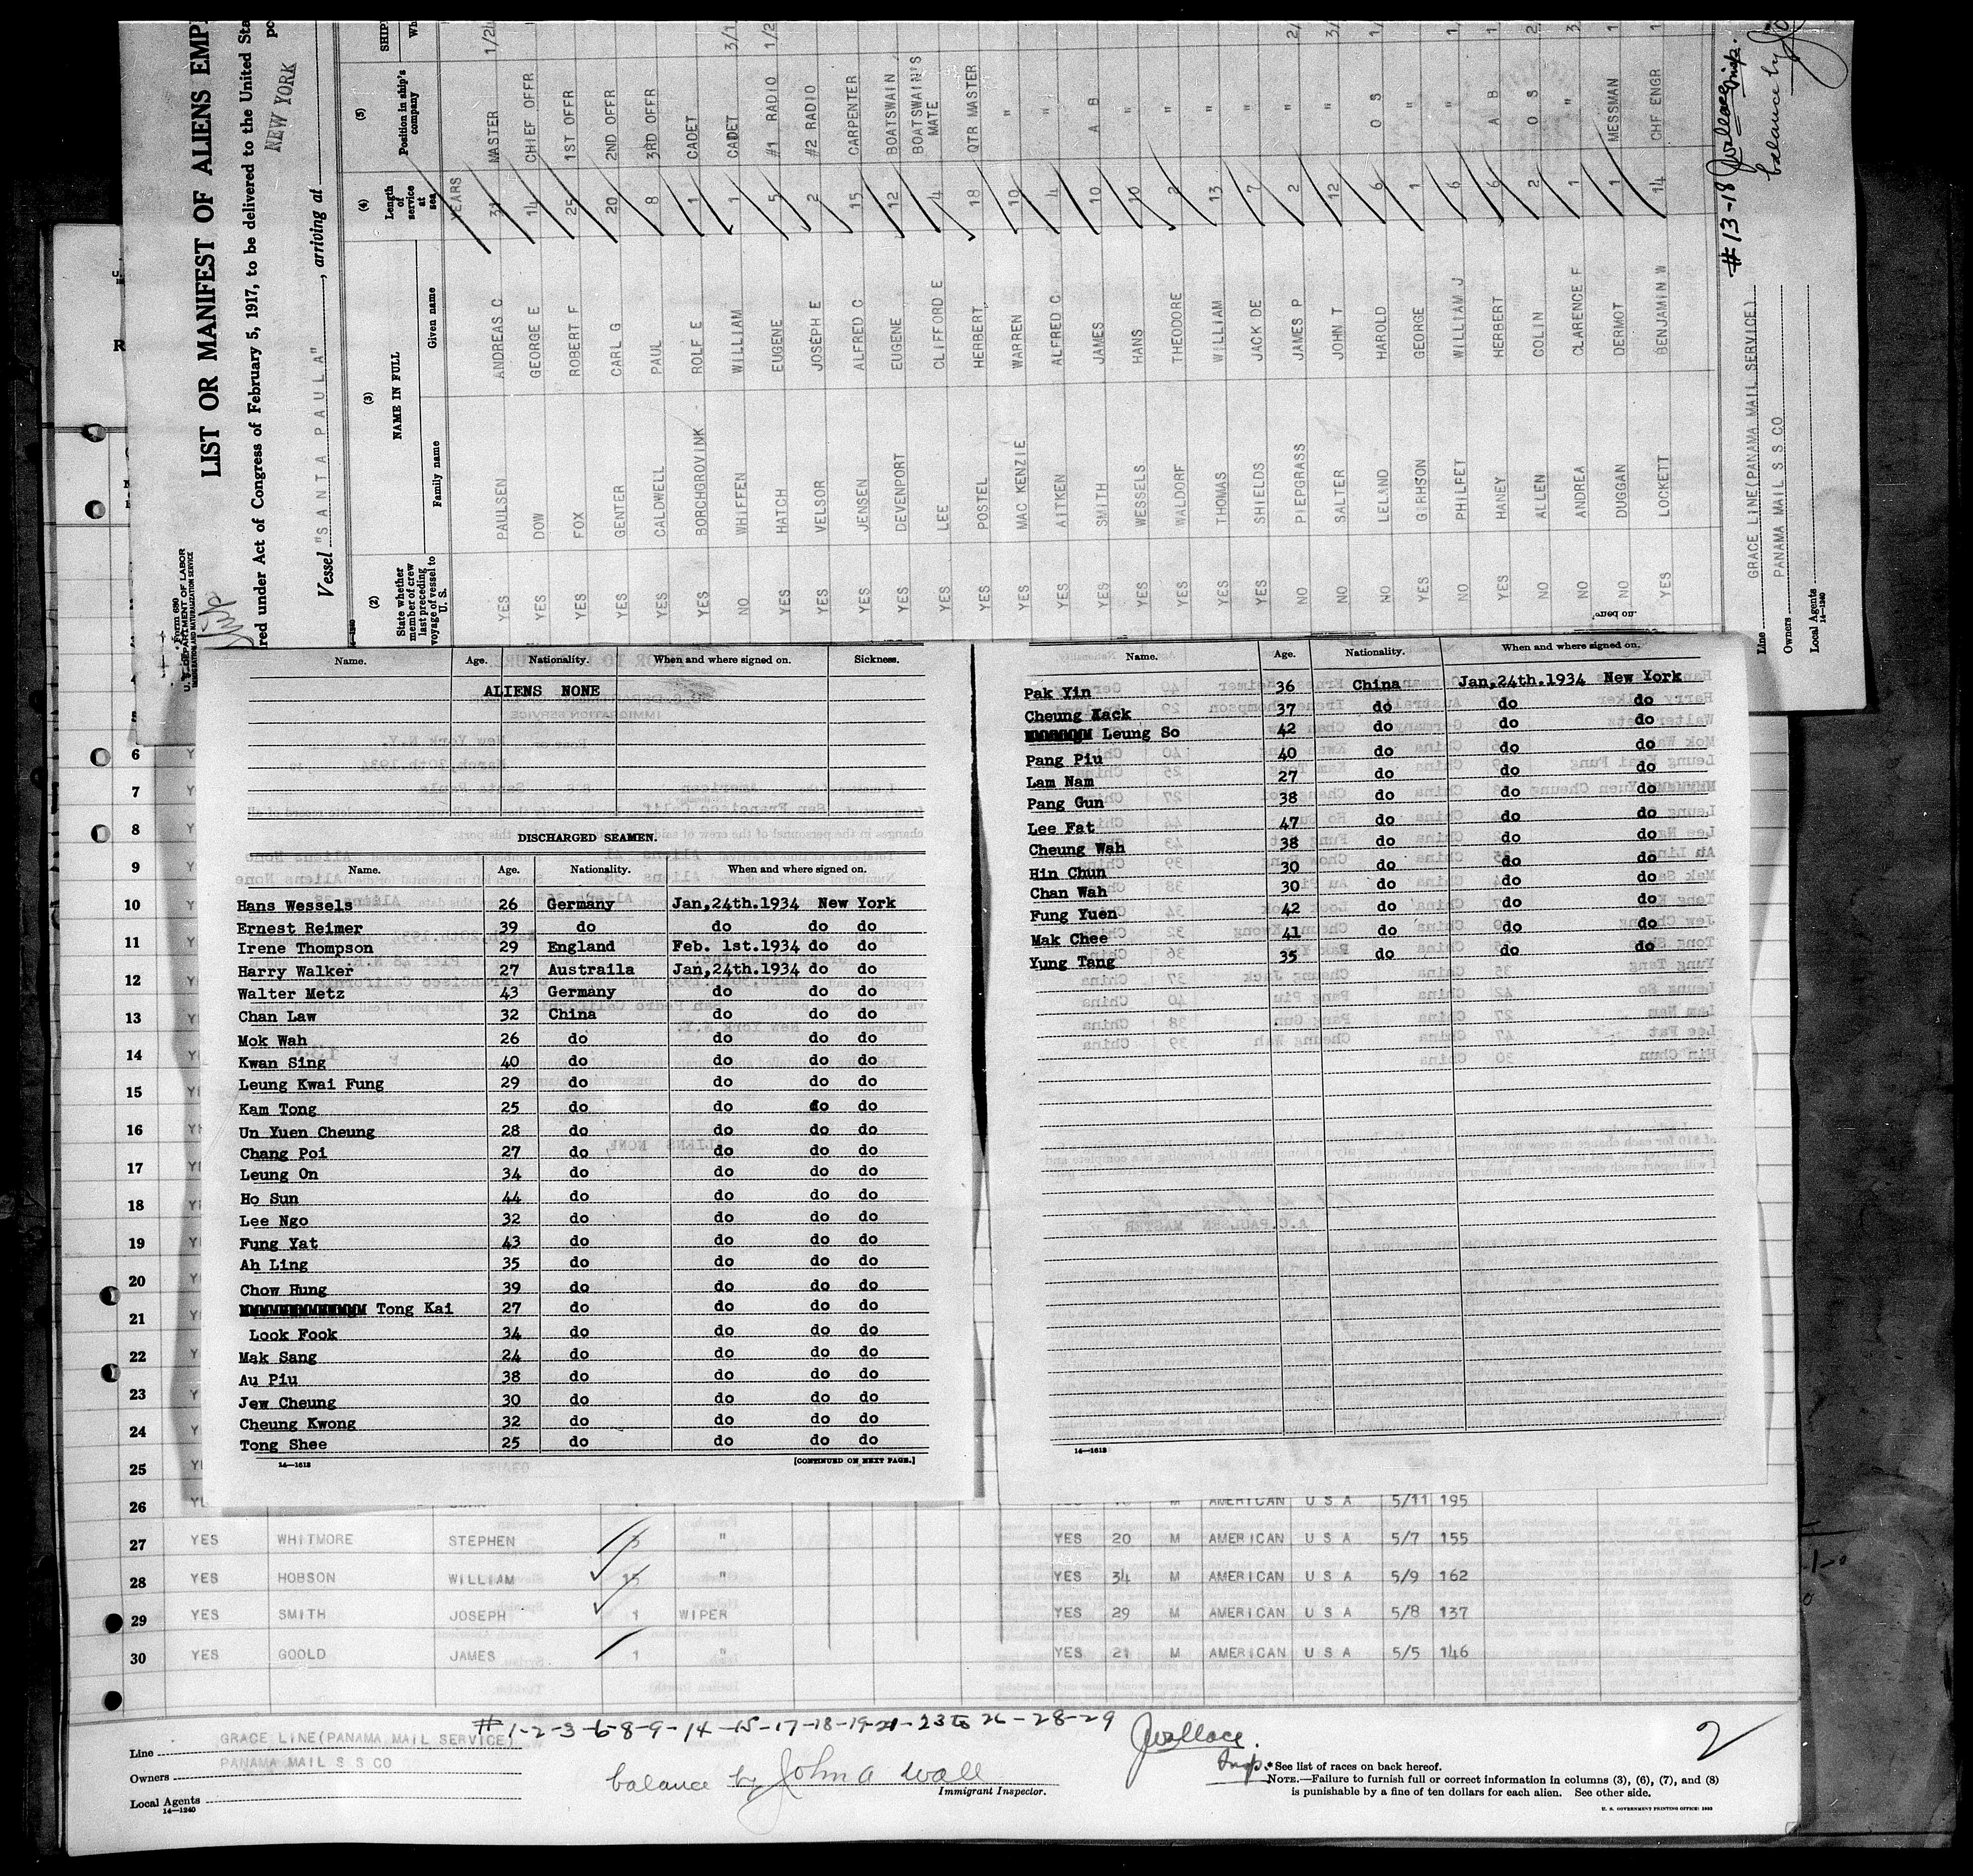 LIST OR MANIFEST OF ALIENS EMP
red under Act of Congress of February 5, 1917, to be delivered to the United Sta
NEW YORK
Vessel "SANTA PAULA", arriving at
Form 680
U. S. DEPARTMENT OF LABOR
IMMIGRATION AND NATURALIZATION SERVICE
(2) (3) (4) (5)
State whether member of crew last preceding voyage of vessel to U. S. NAME IN FULL Family name Given name Length of service at sea Position in ship's company SHIP
YEARS
YES PAULSEN ANDREAS C 31 MASTER
YES DOW GEORGE E 14 CHIEF OFFR
YES FOX ROBERT F 25 1ST OFFR
YES GENTER CARL G 20 2ND OFFR
YES CALDWELL PAUL 8 3RD OFFR
YES BORCHGROVINK ROLF E 1 CADET
NO WHIFFEN WILLIAM 1 CADET
YES HATCH EUGENE 5 #1 RADIO
YES VELSOR JOSEPH E 2 #2 RADIO
YES JENSEN ALFRED C 15 CARPENTER
YES DEVENPORT EUGENE 12 BOATSWAIN
YES LEE CLIFFORD E 4 BOATSWAIN'S MATE
YES POSTEL HERBERT 18 QTR MASTER
YES MAC KENZIE WARREN 10 "
YES AITKEN ALFRED C 4 "
YES SMITH JAMES 10 A B
YES WESSELS HANS 10 "
YES WALDORF THEODORE 2 "
YES THOMAS WILLIAM 13 "
YES SHIELDS JACK DE 7 "
NO PIEPGRASS JAMES P 2 "
NO SALTER JOHN T 12 "
NO LELAND HAROLD 6 O S
YES GIRHSON GEORGE 1 "
NO PHILFET WILLIAM J 6 "
YES HANEY HERBERT 6 A B
NO ALLEN COLIN 2 O S
NO ANDREA CLARENCE F 1 "
NO DUGGAN DERMOT 1 MESSMAN
YES LOCKETT BENJAMIN W 14 CHF ENGR
#13-18 Jwallace Insp.
balance by Jo
Line GRACE LINE(PANAMA MAIL SERVICE)
Owners PANAMA MAIL S S CO
Local Agents
14—1240
Name. Age. Nationality. When and where signed on. Sickness.
ALIENS NONE
DISCHARGED SEAMEN.
Name. Age. Nationality. When and where signed on.
Hans Wessels 26 Germany Jan,24th.1934 New York
Ernest Reimer 39 do do do do
Irene Thompson 29 England Feb. 1st.1934 do do
Harry Walker 27 Austraila Jan,24th.1934 do do
Walter Metz 43 Germany do do do
Chan Law 32 China do do do
Mok Wah 26 do do do do
Kwan Sing 40 do do do do
Leung Kwai Fung 29 do do do do
Kam Tong 25 do do do do
Un Yuen Cheung 28 do do do do
Chang Poi 27 do do do do
Leung On 34 do do do do
Ho Sun 44 do do do do
Lee Ngo 32 do do do do
Fung Yat 43 do do do do
Ah Ling 35 do do do do
Chow Hung 39 do do do do
Tong Kai 27 do do do do
Look Fook 34 do do do do
Mak Sang 24 do do do do
Au Piu 38 do do do do
Jew Cheung 30 do do do do
Cheung Kwong 32 do do do do
Tong Shee 25 do do do do
14—1618 [CONTINUED ON NEXT PAGE.]
Name. Age. Nationality. When and where signed on.
Pak Yin 36 China Jan,24th.1934 New York
Cheung Kack 37 do do do
Leung So 42 do do do
Pang Piu 40 do do do
Lam Nam 27 do do do
Pang Gun 38 do do do
Lee Fat 47 do do do
Cheung Wah 38 do do do
Hin Chun 30 do do do
Chan Wah 30 do do do
Fung Yuen 42 do do do
Mak Chee 41 do do do
Yung Tang 35 do do do
14—1618
6
7
8
9
10
11
12
13
14
15
16
17
18
19
20
21
22
23
24
25
26 AMERICAN U S A 5/11 195
27 YES WHITMORE STEPHEN 3 " YES 20 M AMERICAN U S A 5/7 155
28 YES HOBSON WILLIAM 15 " YES 34 M AMERICAN U S A 5/9 162
29 YES SMITH JOSEPH 1 WIPER YES 29 M AMERICAN U S A 5/8 137
30 YES GOOLD JAMES 1 " YES 21 M AMERICAN U S A 5/5 146
#1-2-3-6-8-9-14-15-17-18-19-21-23 to 26-28-29 Jwallace. Insp.
2
Line GRACE LINE(PANAMA MAIL SERVICE)
Owners PANAMA MAIL S S CO
Local Agents
14—1240
balance by John A Wall
Immigrant Inspector.
*See list of races on back hereof.
NOTE.—Failure to furnish full or correct information in columns (3), (6), (7), and (8)
is punishable by a fine of ten dollars for each alien. See other side.
U. S. GOVERNMENT PRINTING OFFICE: 1933